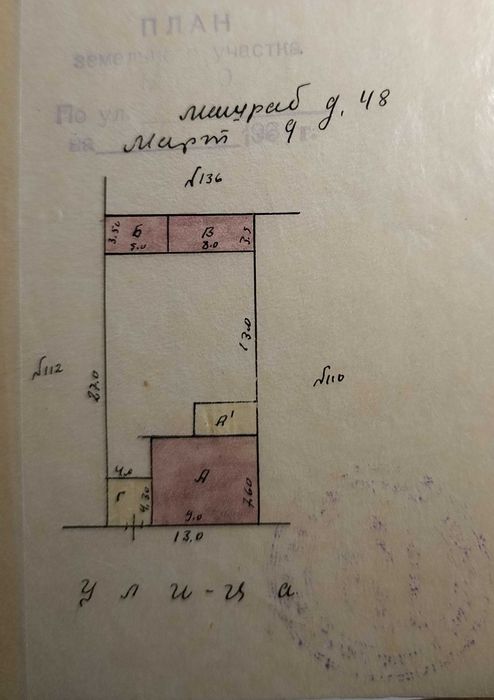 ПЛАН
земельного участка
По ул. Машраб д. 48
за Март 1969 г.
№136
3.50 Б 5.0
В 8.0 3.5
13.0
№112
27.0
№110
А'
4.0
Г 4.30
А
9.0
7.60
13.0
У л и - ц а